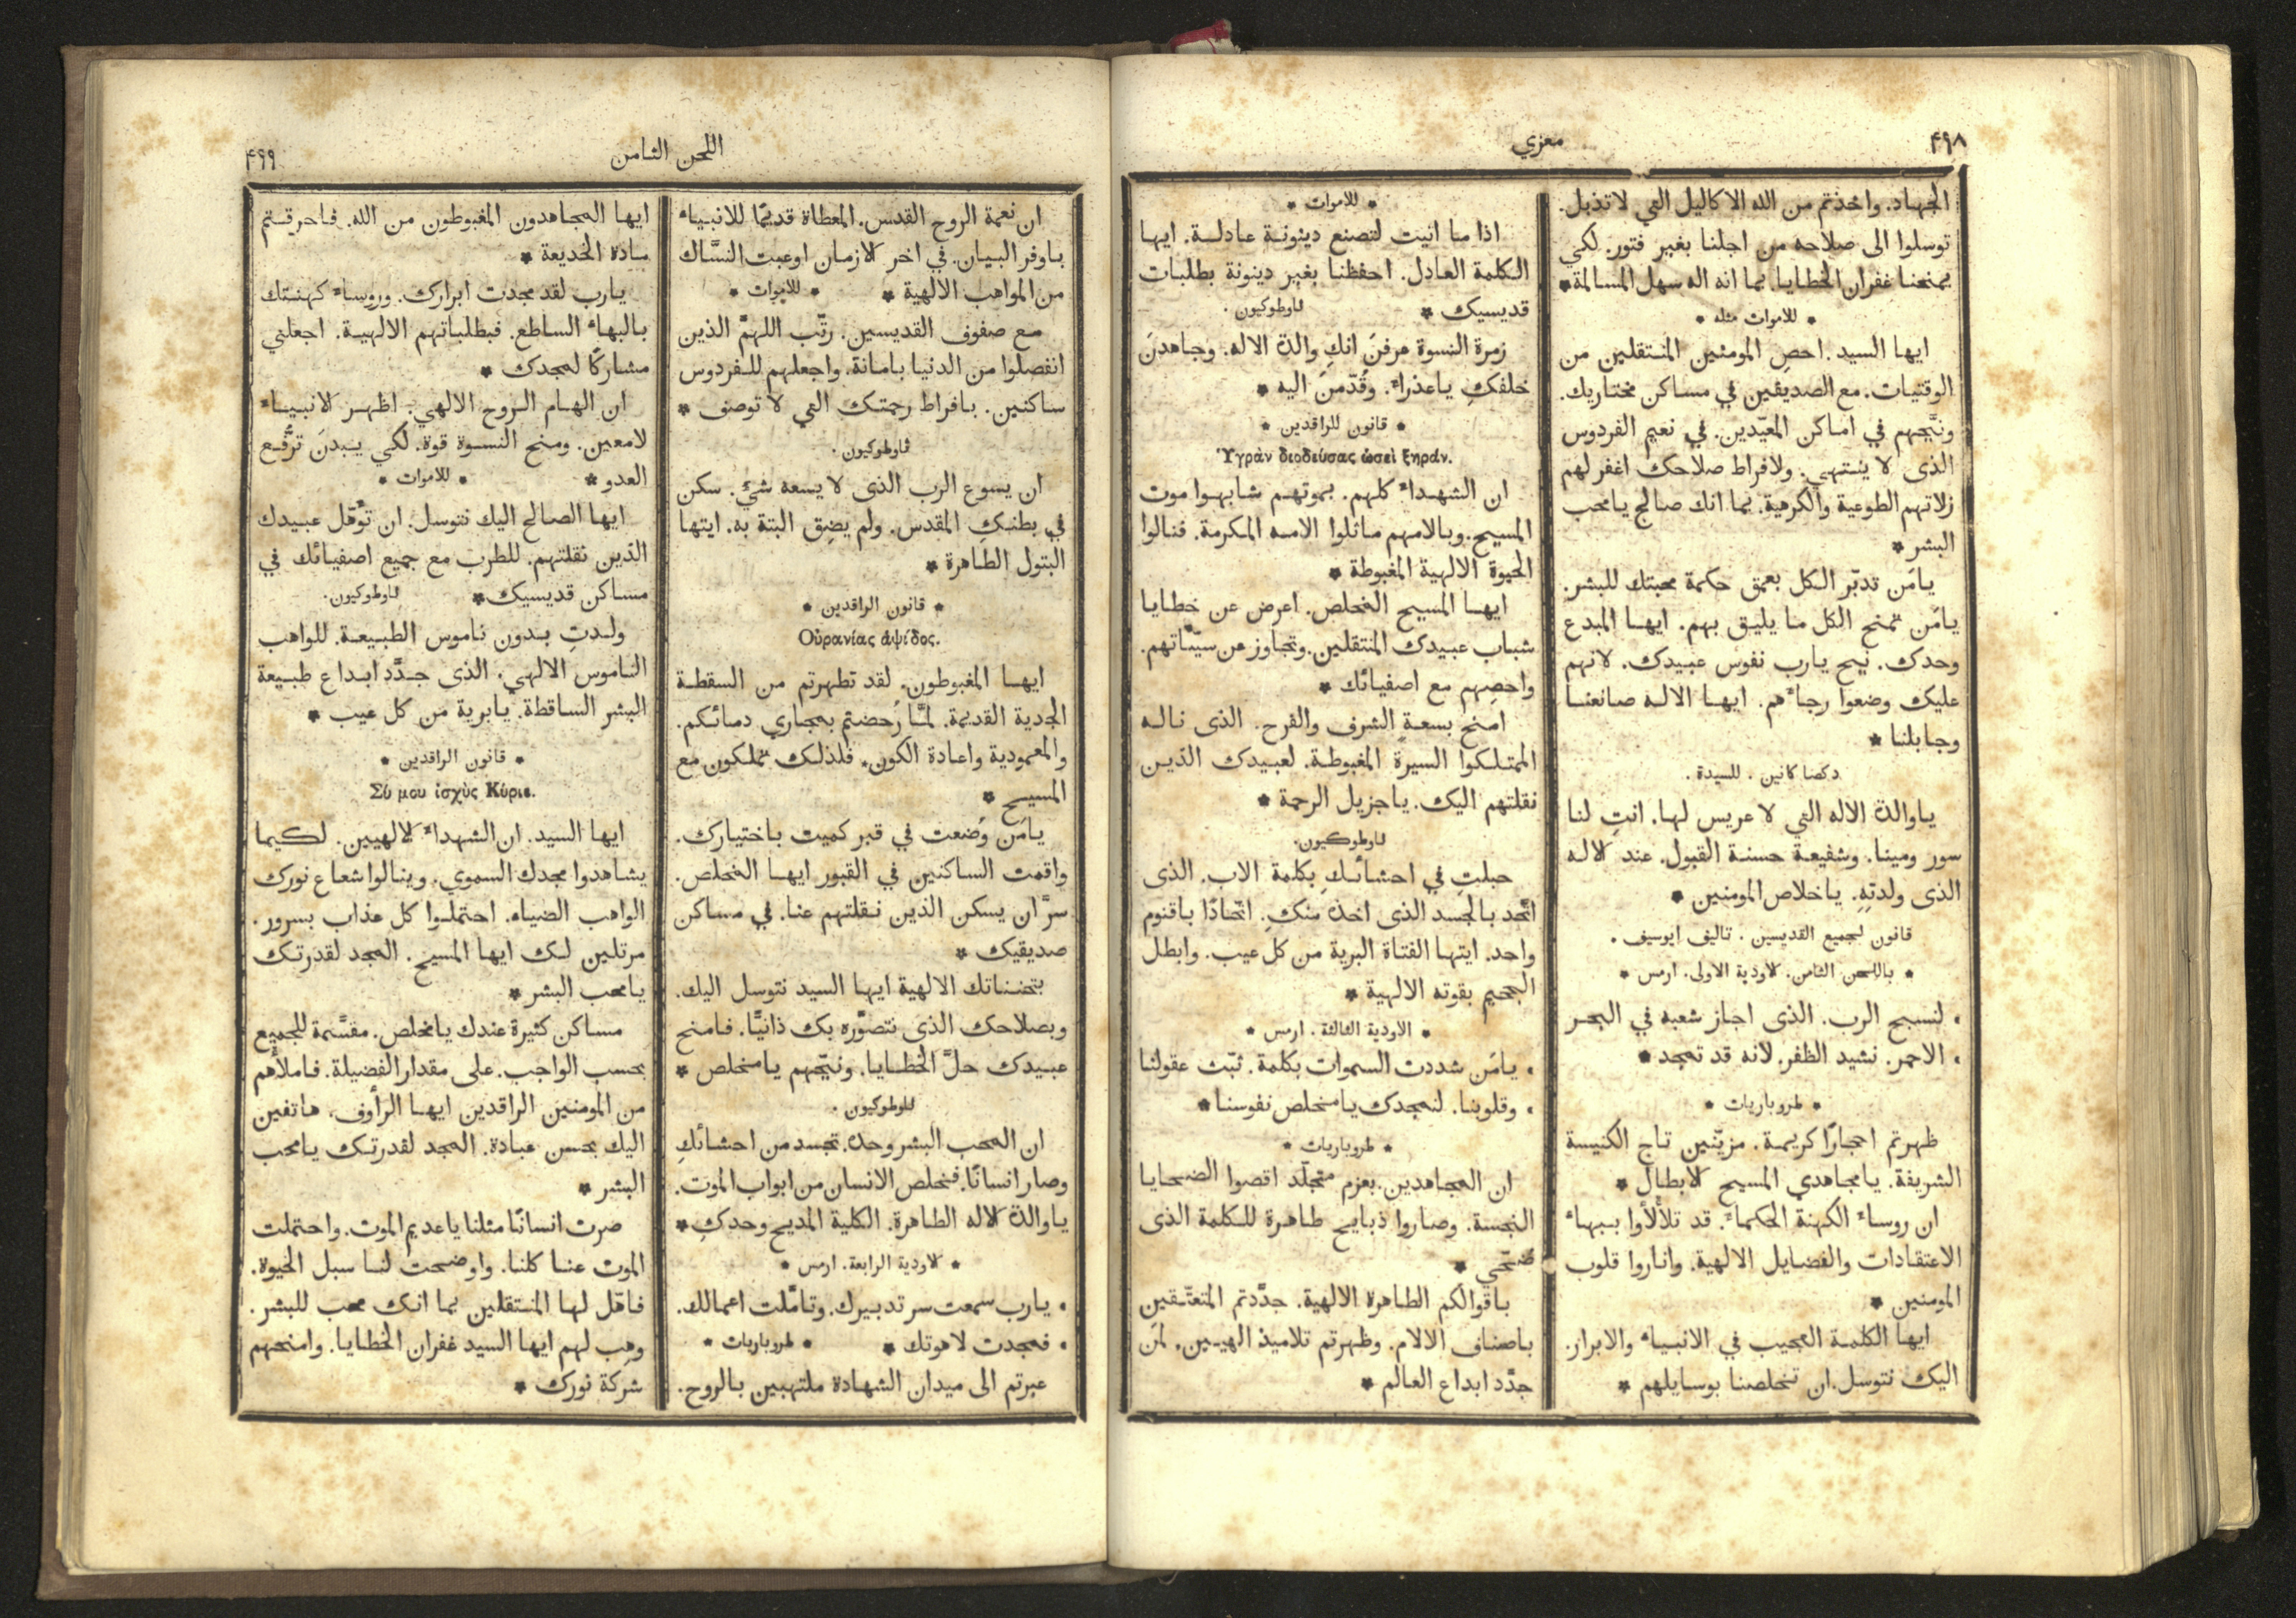 ۴۹۸
معزي
الجهاد. واخذتم من الله الاكاليل التي لا تذبل.
توسلوا الى صلاحه من اجلنا بغير فتور. لكي
يمنحنا غفران الخطايا. بما انه اله سهل المسالمة ٭
٭ للاموات مثله ٭
ايها السيد. احصِ المومنين المنتقلين من
الوقتيات. مع الصديقين في مساكن مختاريك.
ونيّحهم في اماكن المعيّدين. في نعيم الفردوس
الذى لا ينتهي. ولافراط صلاحك اغفر لهم
زلاتهم الطوعية والكرهية. بما انك صالح يا محب
البشر ٭
يا مَن تدبّر الكل بعمق حكمة محبتك للبشر.
يا مَن تمنح الكل ما يليق بهم. ايها المبدع
وحدك. نيح يا رب نفوس عبيدك. لانهم
عليك وضعوا رجاءهم. ايها الاله صانعنا
وجابلنا ٭
دكصا كانين . للسيدة .
يا والدة الاله التي لا عريس لها. انتِ لنا
سور ومينا. وشفيعة حسنة القبول. عند الاله
الذى ولدتِهِ. يا خلاص المومنين ٭
قانون لجميع القديسين . تاليف ايوسيف .
٭ باللحن الثامن. الاودية الاولى. ارمس ٭
• لنسبح الرب. الذى اجاز شعبه في البحر
• الاحمر. نشيد الظفر. لانه قد تمجد ٭
٭ طروباريات ٭
ظهرتم احجارًا كريمة. مزيّنين تاج الكنيسة
الشريفة. يا مجاهدي المسيح الابطال ٭
ان روساء الكهنة الحكماء. قد تلألأوا ببهاء
الاعتقادات والفضايل الالهية. واناروا قلوب
المومنين ٭
ايها الكلمة العجيب في الانبياء والابرار.
اليك نتوسل. ان تخلصنا بوسايلهم ٭
٭ للاموات ٭
اذا ما اتيت لتصنع دينونة عادلة. ايها
الكلمة العادل. احفظنا بغير دينونة بطلبات
قديسيك ٭ ثاوطوكيون .
زمرة النسوة عرفنَ انكِ والدة الاله. وجاهدنَ
خلفكِ يا عذراء. وقُدّمنَ اليه ٭
٭ قانون للراقدين ٭
Ὑγρὰν διοδεύσας ὡσεὶ ξηράν.
ان الشهداء كلهم. بموتهم شابهوا موت
المسيح. وبالامهم ماثلوا الامه المكرمة. فنالوا
الحيوة الالهية المغبوطة ٭
ايها المسيح المخلص. اعرض عن خطايا
شباب عبيدك المنتقلين. وتجاوز عن سيّئاتهم.
واحصِهم مع اصفيائك ٭
امنح بسعةٍ الشرف والفرح. الذى ناله
الممتلكوا السيرة المغبوطة. لعبيدك الذين
نقلتهم اليك. يا جزيل الرحمة ٭
ثاوطوكيون.
حبلتِ في احشائكِ بكلمة الاب. الذى
اتّحد بالجسد الذى اخذه منكِ. اتّحادًا باقنوم
واحد. ايتها الفتاة البرية من كل عيب. وابطل
الجحيم بقوته الالهية ٭
٭ الاودية الثالثة . ارمس ٭
• يا مَن شددت السموات بكلمة. ثبّت عقولنا
• وقلوبنا. لنمجدك يا مخلص نفوسنا ٭
٭ طروباريات ٭
ان المجاهدين. بعزم متجلّد اقصوا الضحايا
النجسة. وصاروا ذبايح طاهرة للكلمة الذى
ضُحّي ٭
باقوالكم الطاهرة الالهية. جدَّدتم المتعتّقين
باصناف الالام. وظهرتم تلاميذ الهيين. لمَن
جدَّد ابداع العالم ٭
اللحن الثامن
۴۹۹
ان نعمة الروح القدس. المعطاة قديمًا للانبياء
باوفر البيان. في اخر الازمان اوعبت النسَّاك
من المواهب الالهية ٭ ٭ للاموات ٭
مع صفوف القديسين. رتّب اللهمَّ الذين
انفصلوا من الدنيا بامانة. واجعلهم للفردوس
ساكنين. بافراط رحمتك التي لا توصف ٭
ثاوطوكيون .
ان يسوع الرب الذى لا يسعه شئ. سكن
في بطنكِ المقدس. ولم يضِق البتة به. ايتها
البتول الطاهرة ٭
٭ قانون الراقدين ٭
Οὐρανίας ἁψίδος.
ايها المغبوطون. لقد تطهرتم من السقطة
الجدية القديمة. لمَّا رُحضتم بمجاري دمائكم.
والمعمودية واعادة الكون. فلذلك تملكون مع
المسيح ٭
يا مَن وُضعت في قبر كميت باختيارك.
واقمت الساكنين في القبور ايها المخلص.
سرَّ ان يسكن الذين نقلتهم عنا. في مساكن
صديقيك ٭
بتحنناتك الالهية ايها السيد نتوسل اليك.
وبصلاحك الذى نتصوَّره بك ذاتيًّا. فامنح
عبيدك حلَّ الخطايا. ونيّحهم يا مخلص ٭
ثاوطوكيون .
ان المحب البشر وحده. تجسد من احشائكِ
وصار انسانًا. فخلص الانسان من ابواب الموت.
يا والدة الاله الطاهرة. الكلية المديح وحدكِ ٭
٭ الاودية الرابعة. ارمس ٭
• يا رب سمعت سر تدبيرك. وتامَّلت اعمالك.
• فمجدت لاهوتك ٭ ٭ طروباريات ٭
عبرتم الى ميدان الشهادة ملتهبين بالروح.
ايها المجاهدون المغبوطون من الله. فاحرقتم
مادة الخديعة ٭
يا رب لقد مجدت ابرارك. وروساء كهنتك
بالبهاء الساطع. فبطلباتهم الالهية. اجعلني
مشاركًا لمجدك ٭
ان الهام الروح الالهي. اظهر الانبياء
لامعين. ومنح النسوة قوة. لكي يبدنَ ترفُّع
العدو ٭ ٭ للاموات ٭
ايها الصالح اليك نتوسل. ان تؤهّل عبيدك
الذين نقلتهم. للطرب مع جميع اصفيائك في
مساكن قديسيك ٭ ثاوطوكيون.
ولدتِ بدون ناموس الطبيعة. للواهب
الناموس الالهي. الذى جدَّد ابداع طبيعة
البشر الساقطة. يا برية من كل عيب ٭
٭ قانون الراقدين ٭
Σύ μου ἰσχὺς Κύριε.
ايها السيد. ان الشهداء الالهيين. لكيما
يشاهدوا مجدك السموي. وينالوا شعاع نورك
الواهب الضياء. احتملوا كل عذاب بسرور.
مرتلين لك ايها المسيح. المجد لقدرتك
يا محب البشر ٭
مساكن كثيرة عندك يا مخلص. مقسَّمة للجميع
بحسب الواجب. على مقدار الفضيلة. فاملأهم
من المومنين الراقدين ايها الرأوف. هاتفين
اليك بحسن عبادة. المجد لقدرتك يا محب
البشر ٭
صرت انسانًا مثلنا يا عديم الموت. واحتملت
الموت عنا كلنا. واوضحت لنا سبل الحيوة.
فاهّل لها المنتقلين بما انك محب للبشر.
وهِب لهم ايها السيد غفران الخطايا. وامنحهم
شركة نورك ٭